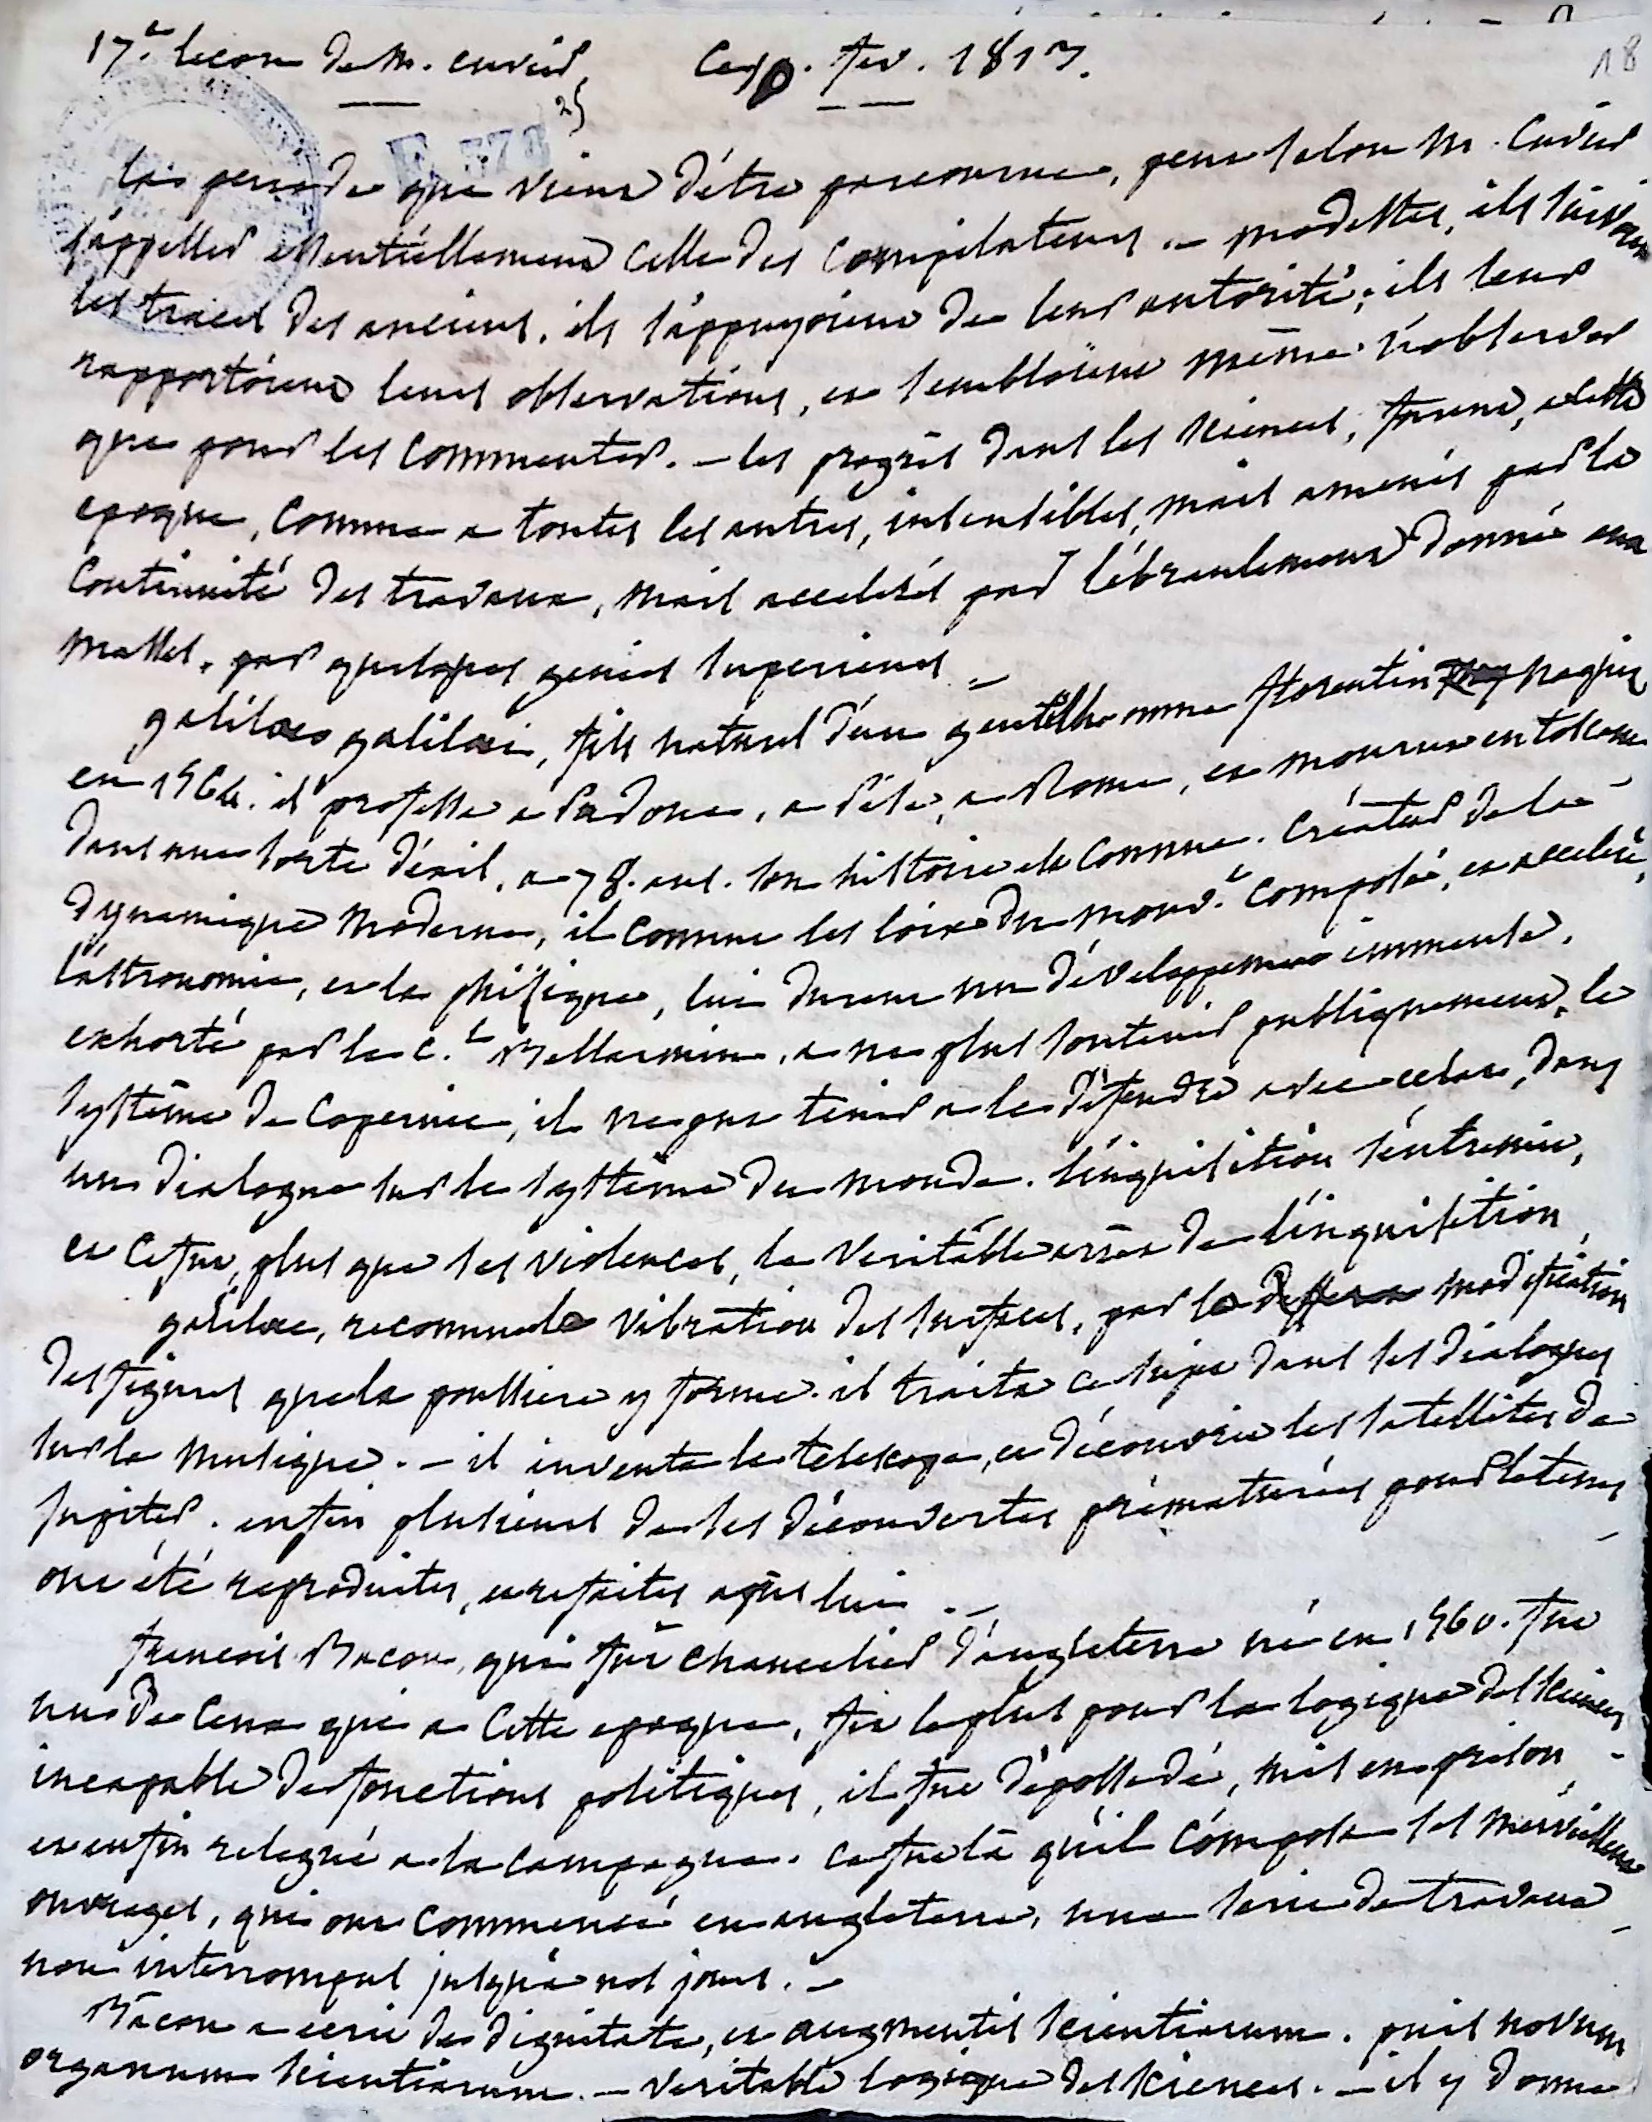 17.e leçon de M. cuvier, ce 10. fev. 1813.
18
25
la periode que vient d'être parcourue, peut selon M. Cuvier
s'appeller essentiellement celle des compilateurs. — modestes, ils suivoient
les traces des anciens, ils s'appuyoient de leur autorité; ils leur
rapportoient leurs observations, et sembloient même n'observer
que pour les commenter. — les progrès dans les sciences, furent, a cette
epoque, comme a toutes les autres, insensibles, mais amenés par la
continuité des travaux, mais accelerés par l'ébranlement donné aux
masses, par quelques genies superieurs —
galiloeo galiloei, fils naturel d'un gentilhomme florentin naquit
en 1564. il professa a Padoue, a Pise, a Rome, et mourut en toscane
dans une sorte d'éxil, a 78. ans. son histoire est connue. créateur de la
dynamique moderne, il connut les loix du mouv.t composé, et acceleré,
l'astronomie, et la phisique, lui durent un développement immense.
exhorté par le c.l Bellarmin, a ne plus soutenir publiquement, le
système de Copernic, il ne put tenir a le défendre avec eclat, dans
un dialogue sur le système du monde. l'inquisition s'entremit,
et ce fut, plus que ses violences, le veritable arrêt de l'inquisition,
galiloee, reconnut la vibration des surfaces, par la modification
des figures que la poussiere y forme. il traita ce sujet dans ses dialogues
sur la musique. — il inventa le telescope, et découvrit les satellites de
Jupiter. enfin plusieurs de ses découvertes prématurées pour le tems
ont été reproduites, et refaites après lui. —
françois Bacon, qui fut chancelier d'angleterre né en 1560. fut
un de ceux qui a cette epoque, fit le plus pour la logique des sciences
incapable de fonctions politiques, il fut dépossedé, mis en prison,
et enfin relegué a la campagne. ce fut là qu'il composa ses merveilleux
ouvrages, qui ont commencé en angleterre, une serie de travaux
non interrompus jusqu'à nos jours. —
Bacon a ecrit de dignitate, et augmentis scientiarum. puis novum
organum scientiarum. — veritable logique des sciences. — il y donne